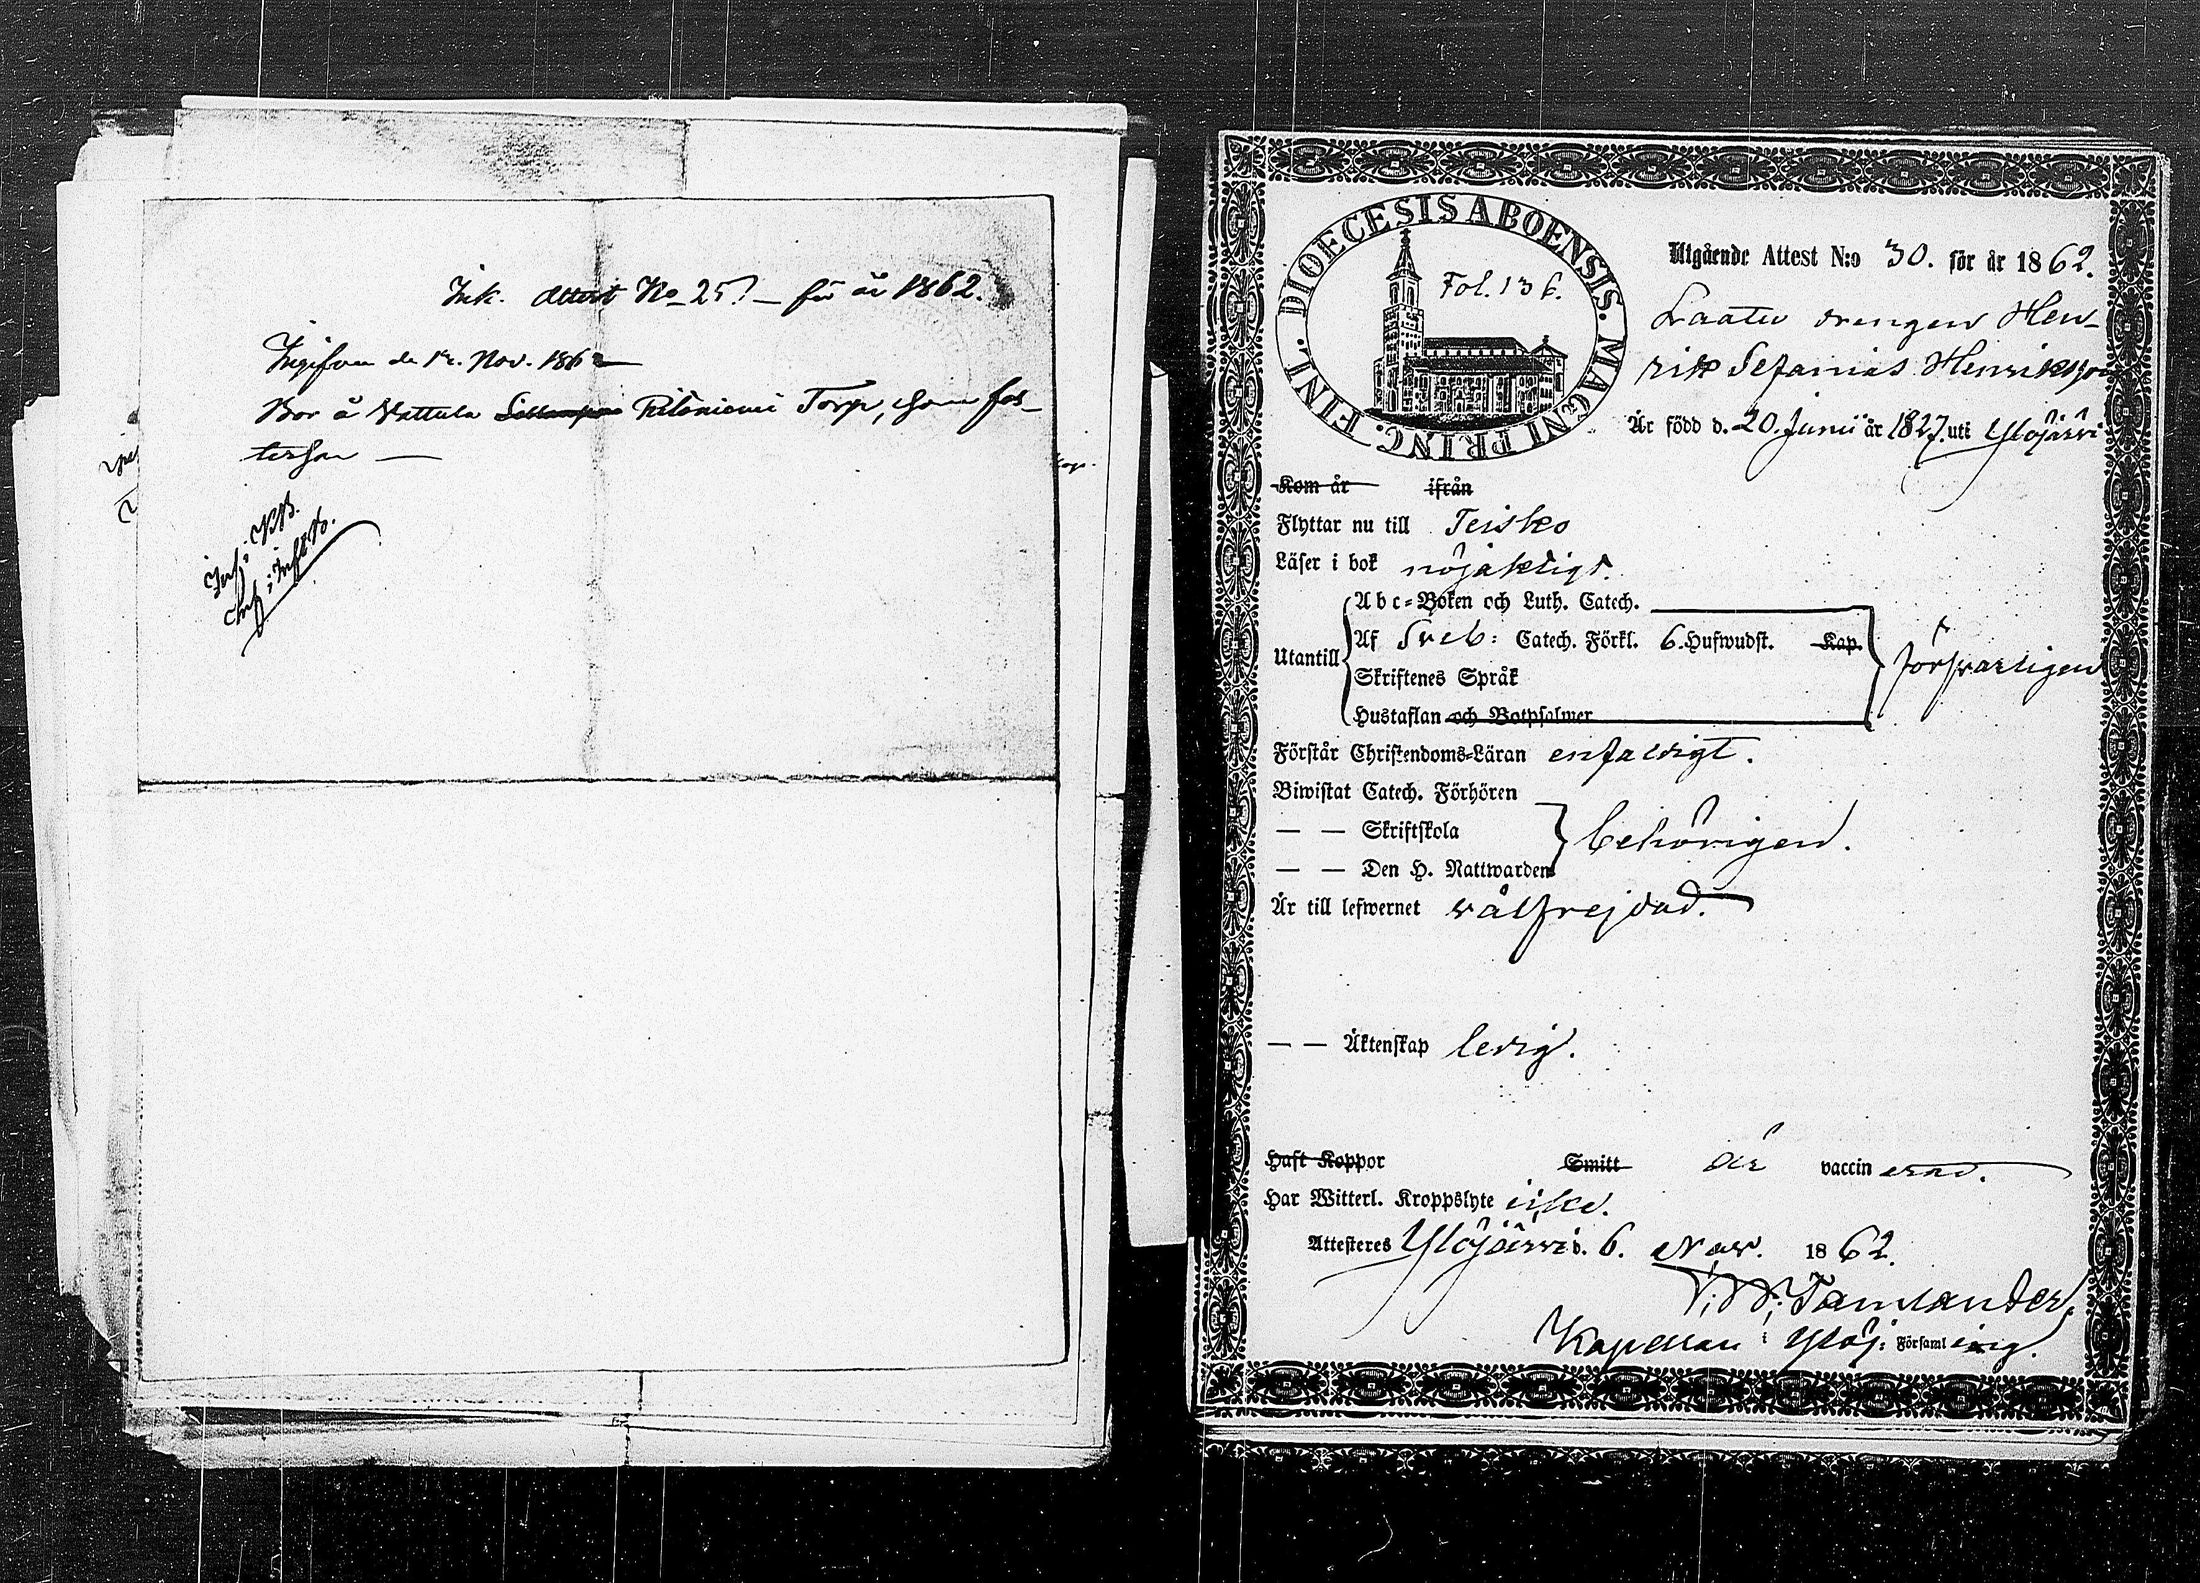 Ink. Attest No 25 för år 1862.
Ingifven d. 12. Nov. 1862
Bor å Vattula Ritoniemi Torp, som fos-
terson —
Inf. i KB.
Inf. i Infl. B.
DIOECESIS ABOENSIS. MAGNI PRINC. FINL.
Fol. 136.
Utgående Attest N:o 30. för år 1862.
Laatu drengen Hen-
rik Sefanias Henriksson
Är född d. 20. Junii år 1827. uti Ylöjärvi
Kom år ifrån
Flyttar nu till Teisko
Läser i bok nöjaktigt.
Abc-Boken och Luth. Catech.
Utantill Af Sveb: Catech. Förkl. 6. Hufwudst. Kap.
Skriftenes Språk
försvarligen
Hustaflan och Botpsalmer
Förstår Christendoms-Läran enfaldigt.
Biwistat Catech. Förhören
— — Skriftskola
behörigen.
— — Den H. Nattwarden
Är till lefwernet välfrejdad.
— — Äktenskap ledig.
Haft Koppor Smitt är vaccinerad.
Har Witterl. Kroppslyte icke.
Attesteres Ylöjärvi d. 6. Nov. 1862.
V. W. Tamlander,
Kapellan i Ylöj: Församling.